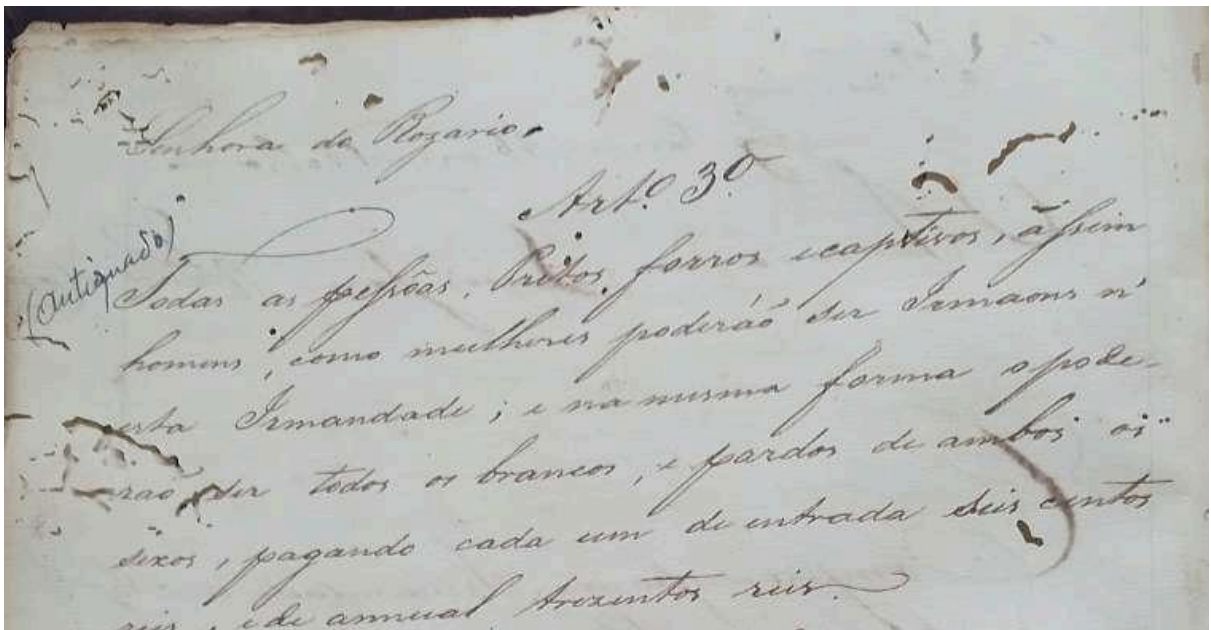 Senhora do Rozario.
Art.º 3º
(antiquado)
Todas as pessôas, Pretos, forros e captivos, assim
homens, como mulheres poderáõ ser Irmaons n'
esta Irmandade; e na mesma forma o pode-
rao ser todos os brancos, e pardos de ambos os
sexos, pagando cada um de entrada seis centos
reis, e de annual trezentos reis.